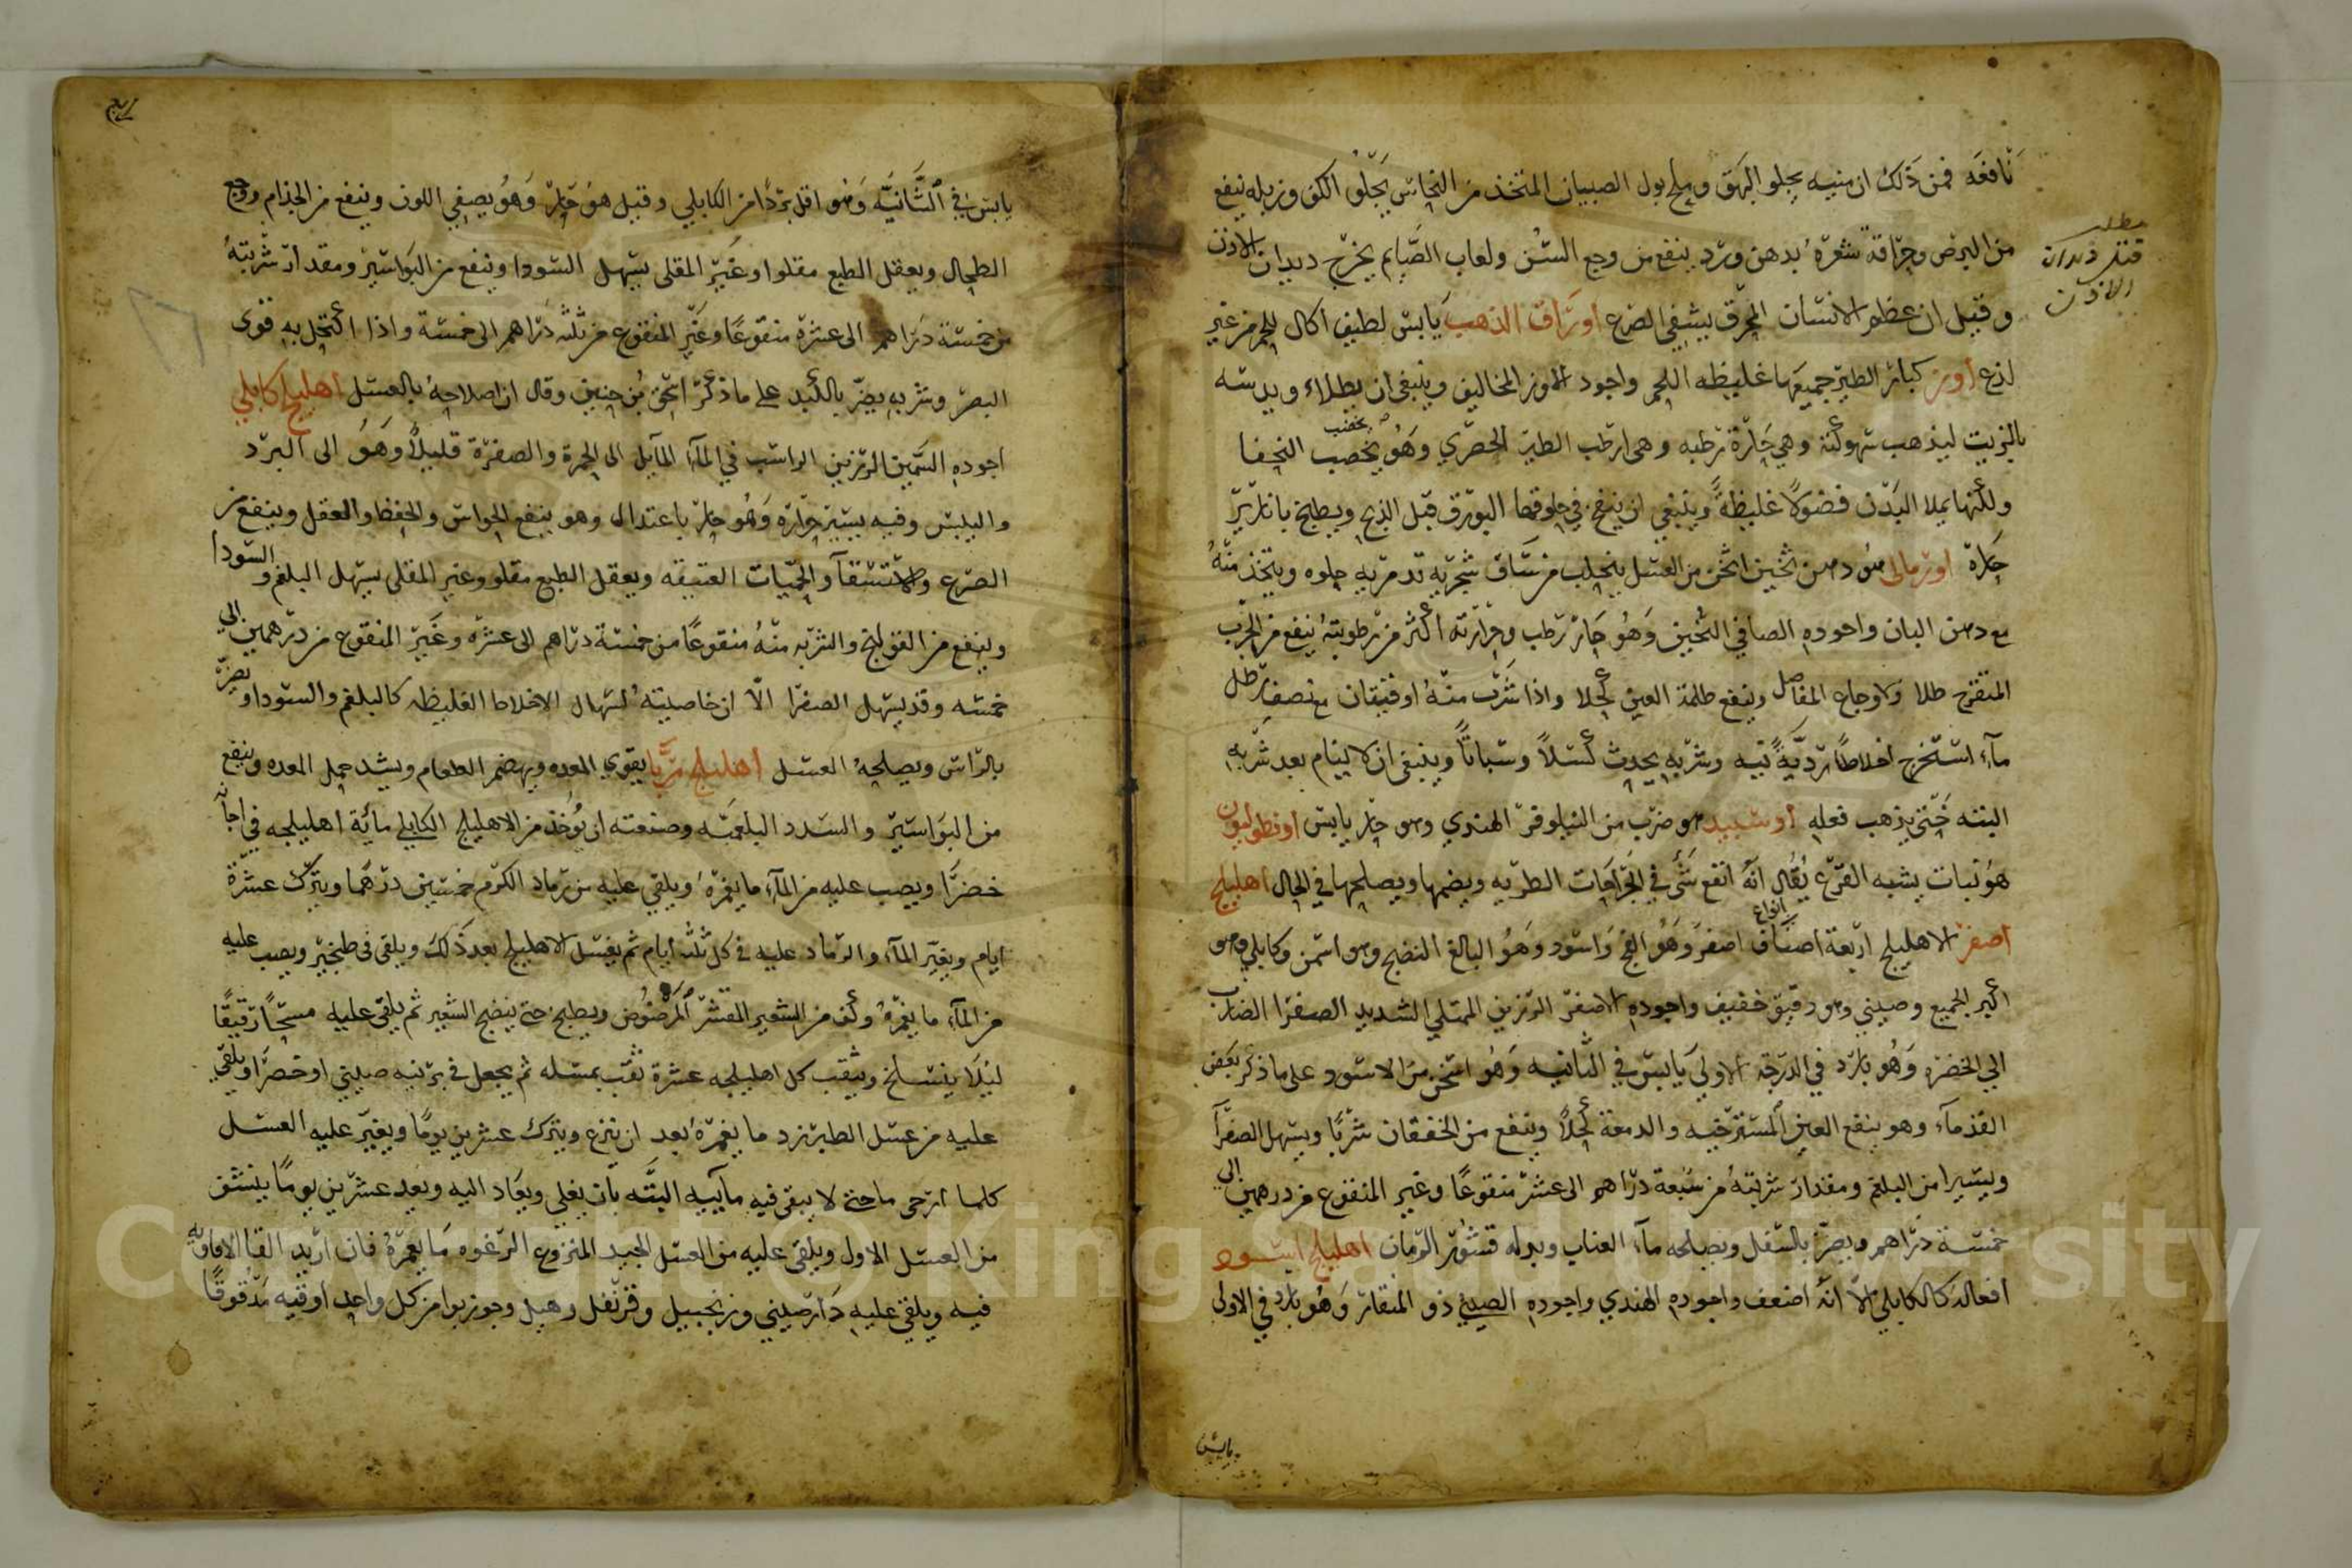 نافعه فمن ذلك ان منيه يجلو البهق وملح بول الصبيان المتخذ من النحاس يجلو الكف وزبله ينفع
من البرص وحراقة شعره بدهن ورد ينفع من وجع السن ولعاب الصايم يخرج ديدان الاذن
وقيل ان عظم الانسان المحرق يشفي الصرع أوراق الذهب يابس لطيف اكال للحم من غير
لذع أوز كبار الطير جميعها غليظه اللحم واجود الاوز المخاليف وينبغي ان يطلاء ويدسه
بالزيت ليذهب سهوكته وهي حارة رطبه وهي ارطب الطير الحضري وهو يخصب النحفا
ولكنها يملا البدن فضولا غليظة وينبغي ان ينفخ في حلوقها البورق قبل الذبح ويطبخ بابازير
حارة اورمالي هو دهن ثخين اثخن من العسل ينحلب من ساق شجرة تدمرية حلوه ويتخذ منه
مع دهن البان واجوده الصافي الثخين وهو حار رطب وحرارته أكثر من رطوبته ينفع من الجرب
المتقرح طلا ولاوجاع المفاصل وينفع ظلمة العين كحلا واذا شرب منه اوقيتان مع نصف رطل
مآء استخرج اخلاطا رديّة نيه وشربه يحدث كسلاً وسباتاً وينبغي ان لا ينام بعد شربه
البته حتى يذهب فعله أوسبيد هو ضرب من النيلوفر الهندي وهو حار يابس اونطوليون
هو نبات يشبه القرع يقال انه انفع شئ في الجراحات الطريه ويضمها ويصلحها في الحال اهليلج
أصفر الاهليلج اربعة اصناف انواع اصفر وهو الفج واسود وهو البالغ النضيج وهو اسمن وكابلي وهو
اكبر الجميع وصيني وهو دقيق خفيف واجوده الاصفر الرزين الممتلي الشديد الصفرا الضارب
الي الخضره وهو بارد في الدرجة الاولى يابس في الثانيه وهو اسخن من الاسود على ما ذكر بعض
القدمآء وهو ينفع العين المسترخيه والدمعة كحلاً وينفع من الخفقان شربا ويسهل الصفرآ
ويسيرا من البلغم ومقدار شربته من سبعة دراهم الى عشر منقوعاً وغير المنقوع من درهمين الى
خمسة دراهم ويضر بالسفل ويصلحه مآء العناب وبدله قشور الرمان اهليلج اسود
افعاله كالكابلي الا انه اضعف واجوده الهندي واجوده الصيني ذو المنقار وهو بارد في الاولى
يابس
مطلب
قتل ديدان
الاذن
يابس في الثانيّه وهو اقل بردا من الكابلي وقيل هو حار وهو يصفي اللون وينفع من الجذام ووجع
الطحال ويعقل الطبع مقلوا وغير المقلى يسهل السودا وينفع من البواسير ومقدار شربته
من خمسة دراهم الى عشرة منقوعاً وغير المنقوع من ثلثه دراهم الى خمسة واذا اكتحل به قوى
البصر وشربه يضر بالكبد على ما ذكر اسحق بن حنين وقال ان اصلاحه بالعسل أهليلج كابلي
اجوده السمين الرزين الراسب في المآء المايل الى الحمرة والصفرة قليلاً وهو الى البرد
واليبس وفيه يسير حراره وهو حار باعتدال وهو ينفع الحواس والحفظ والعقل وينفع من
الصرع والاستسقآ والحميات العتيقه ويعقل الطبع مقلو وغير المقلى يسهل البلغم والسودا
وينفع من القولنج والشربه منه منقوعاً من خمسة دراهم الى عشره وغير المنقوع من درهمين الى
خمسه وقد يسهل الصفرا الّا ان خاصيته اسهال الاخلاط الغليظه كالبلغم والسودا ويضر
بالراس ويصلحه العسل أهليلج مربّا يقوي المعده ويهضم الطعام ويشد حمل المعده وينفع
من البواسير والسدد البلغميّه وصنعته ان يؤخذ من الاهليلج الكابلي مائة اهليلجه في اجانة
خضرا ويصب عليه من المآء ما يغمره ويلقي عليه من رماد الكرم خمسين درهما ويترك عشرة
ايام ويغير المآء والرماد عليه في كل ثلثه أيام ثم يغسل الاهليلج بعد ذلك ويلقى في طنجير ويصب عليه
من المآء ما يغمره وكف من الشعير المقشر المرضوض ويطبخ حتى ينضج الشعير ثم يلقى عليه مسحا رقيقا
ليلا ينسلخ ويثقب كل اهليلجه عشرة ثقب بمسله ثم يجعل في برنيه صيني او خضرا ويلقي
عليه من عسل الطبرزد ما يغمره بعد ان ينزع ويترك عشرين يومًا ويغير عليه العسل
كلما ارخى ما حتى لا يبقى فيه مآييه البتّه بان يغلي ويعاد اليه وبعد عشرين يومًا ينشف
من العسل الاول ويلقى عليه من العسل الجيد المنزوع الرغوه ما يغمره فان اريد القا الافاويه
فيه ويلقى عليه دارصيني وزنجبيل وقرنفل وهيل وجوزبوا من كل واحد أوقيه مدقوقًا